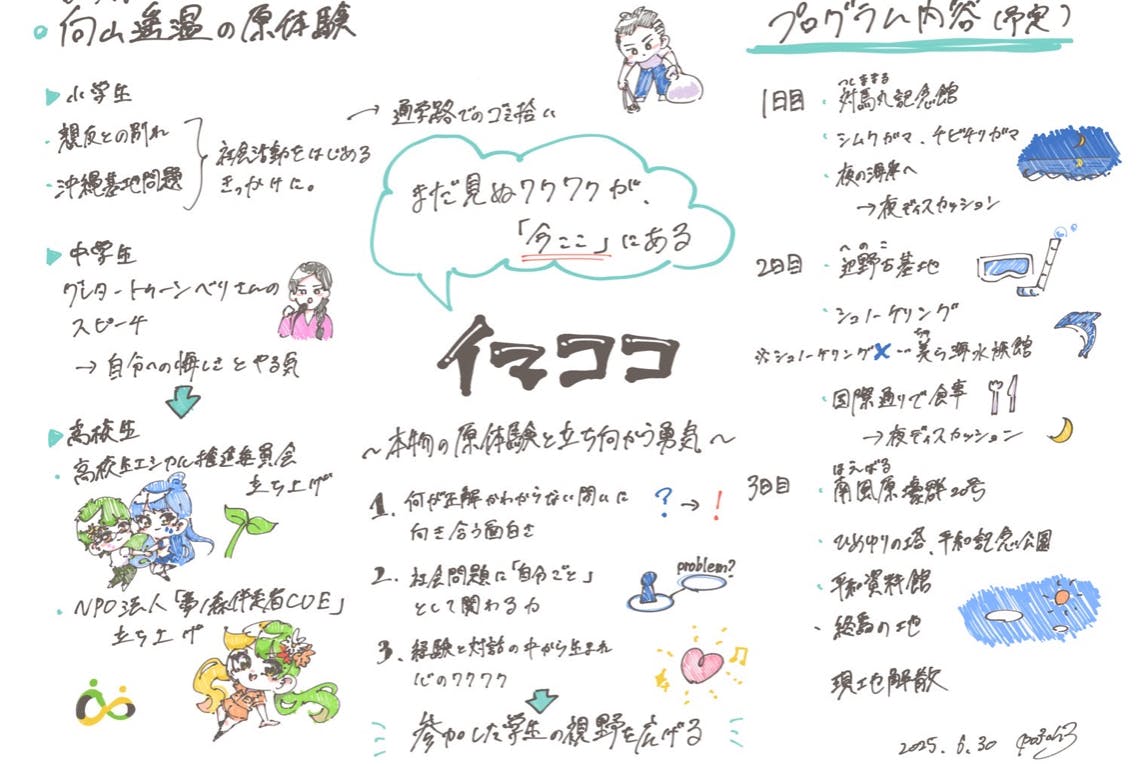 向山遥温の原体験
小学生
親友との別れ
沖縄基地問題
社会活動をはじめる
きっかけに。
→通学路でのゴミ拾い
中学生
グレタ・トゥーンベリさんの
スピーチ
→自分への悔しさとやる気
高校生
高校生エシカル推進委員会
立ち上げ
NPO法人「夢ノ森伴走者CUE」
立ち上げ
まだ見ぬワクワクが、
「今ここ」にある
イマココ
～本物の原体験と立ち向かう勇気～
1. 何が正解かわからない問いに
向き合う面白さ
?→!
2. 社会問題に「自分ごと」
として関わる力
problem?
3. 経験と対話の中から生まれ
心のワクワク
参加した学生の視野を広げる
プログラム内容(予定)
1日目
つしままる
・対馬丸記念館
・シムクガマ、チビチリガマ
・夜の海岸へ
→夜ディスカッション
2日目
へのこ
・辺野古基地
・シュノーケリング
ちゅ
※シュノーケリング×…美ら海水族館
・国際通りで食事
→夜ディスカッション
3日目
はえばる
・南風原壕群20号
・ひめゆりの塔、平和記念公園
・平和資料館
・終焉の地
現地解散
2025. 6. 30